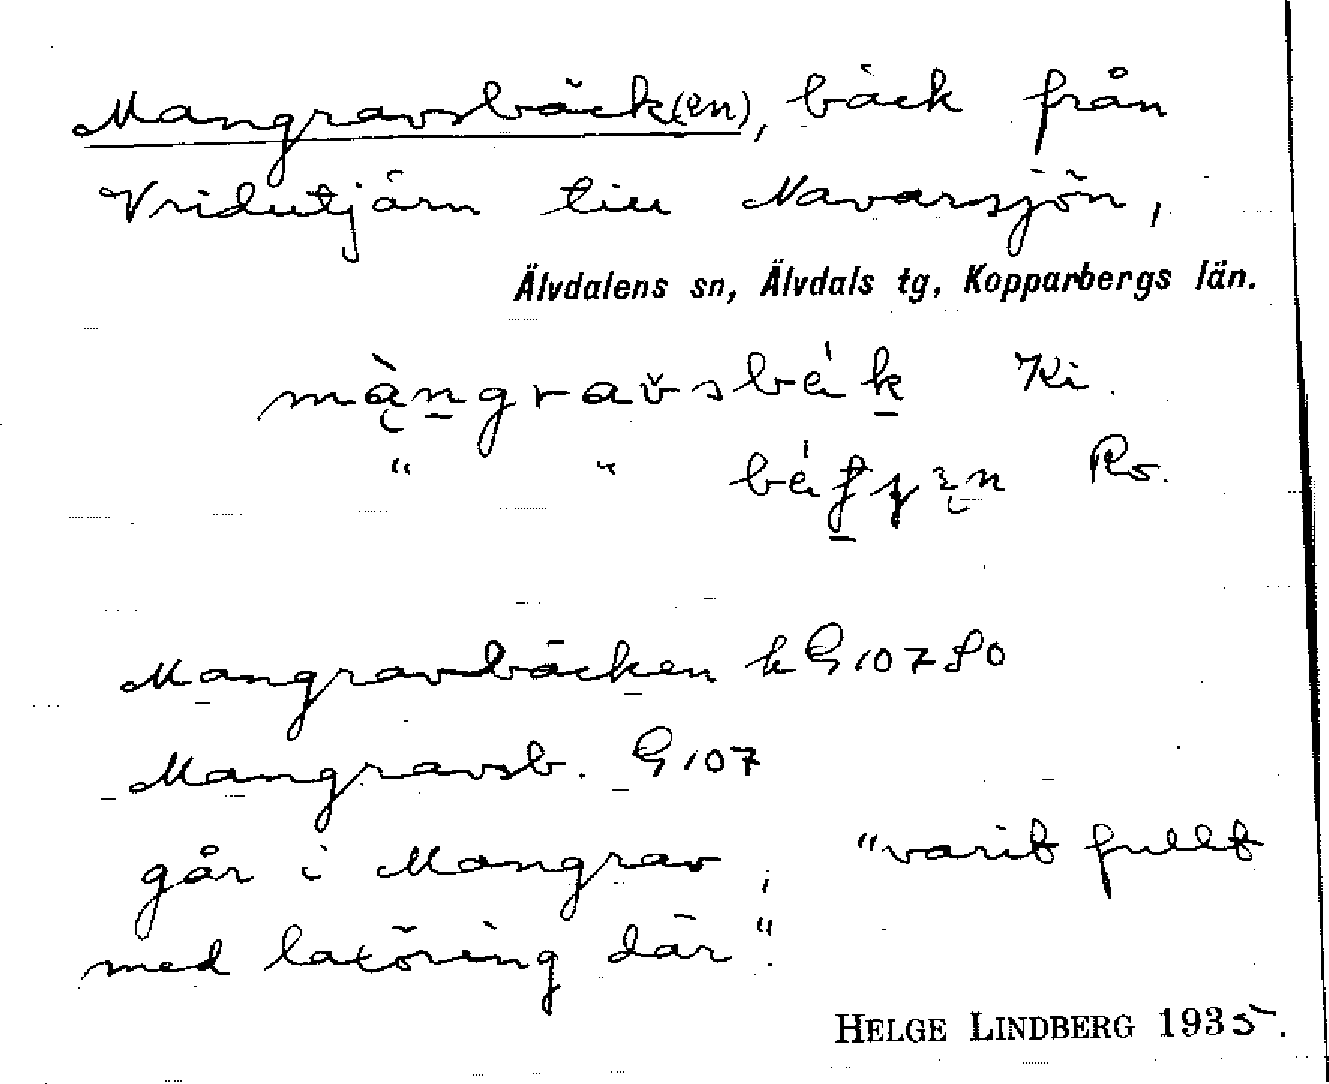 Mangravsbäck(en), bäck från
Vridutjärn till Navarsjön,
Älvdalens sn, Älvdals tg, Kopparbergs län.
màngravsbák Ki.
" " Ro.
Mangravbäcken kG 107 SO
Mangravsb. G 107
går i Mangrav, "varit fullt
med laxöring där".
HELGE LINDBERG 1935.